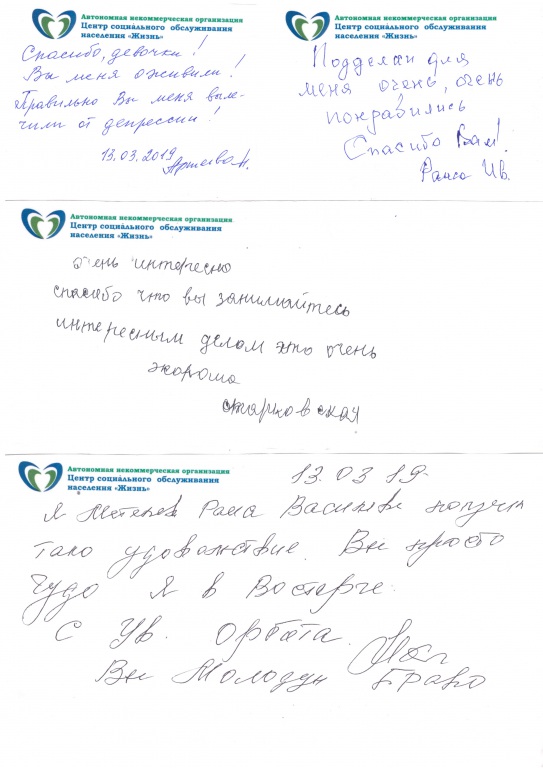 Автономная некоммерческая организация
Центр социального обслуживания
населения «Жизнь»
Спасибо, девочки!
Вы меня оживили!
Правильно Вы меня выле-
чили от депрессии!
13.03.2019
Автономная некоммерческая организация
Центр социального обслуживания
населения «Жизнь»
Подделки для
меня очень, очень
понравились
Спасибо Вам!
Раиса Ив.
Автономная некоммерческая организация
Центр социального обслуживания
населения «Жизнь»
очень интересно
спасибо что вы занимайтесь
интересным делом это очень
хороша
Автономная некоммерческая организация
Центр социального обслуживания
населения «Жизнь»
13.03 19.
Я Раиса
тако удовольствие. Вы просто
Чудо Я в Восторге.
С Ув.
Вы Молодцы Браво